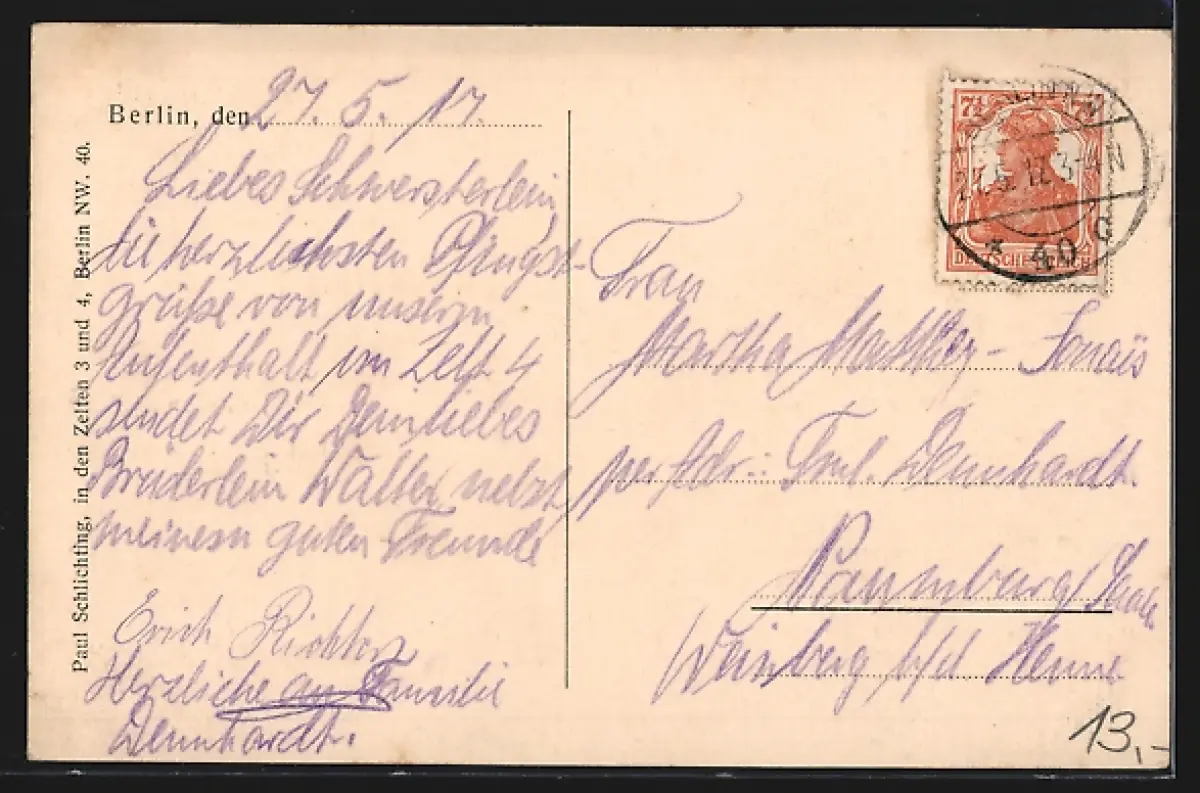 Berlin, den 27. 5. 17.
Liebes Schwersterlein
die herzlichsten Pfingst-
grüße von unserm
Aufenthalt im Zelt 4
sendet Dir Dein liebes
Brüderlein Walter nebst
meinem guten Freunde
Erich Richter
Herzliche an Familie
Dennhardt.
Paul Schlichting, in den Zelten 3 und 4, Berlin NW. 40.
7½ 7½
27.5.17. 3-4N
* 40 d
DEUTSCHES REICH
Frau
Martha Matthey-
per Adr.: Fml. Dennhardt.
Naumburg/Saale
Weinberg b/d Henne
13,-